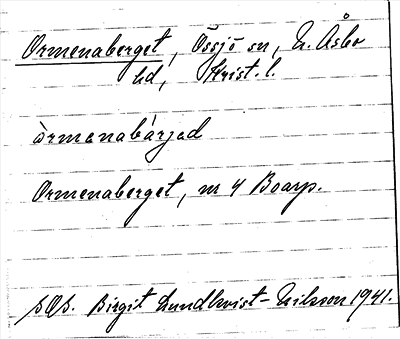 Ormenaberget, Össjö sn, N. Åsbo
hd, Krist. l.
òrmanabárjad
Ormenaberget, nr 4 Boarp.
Birgit Lundkvist-Nilsson 1941.